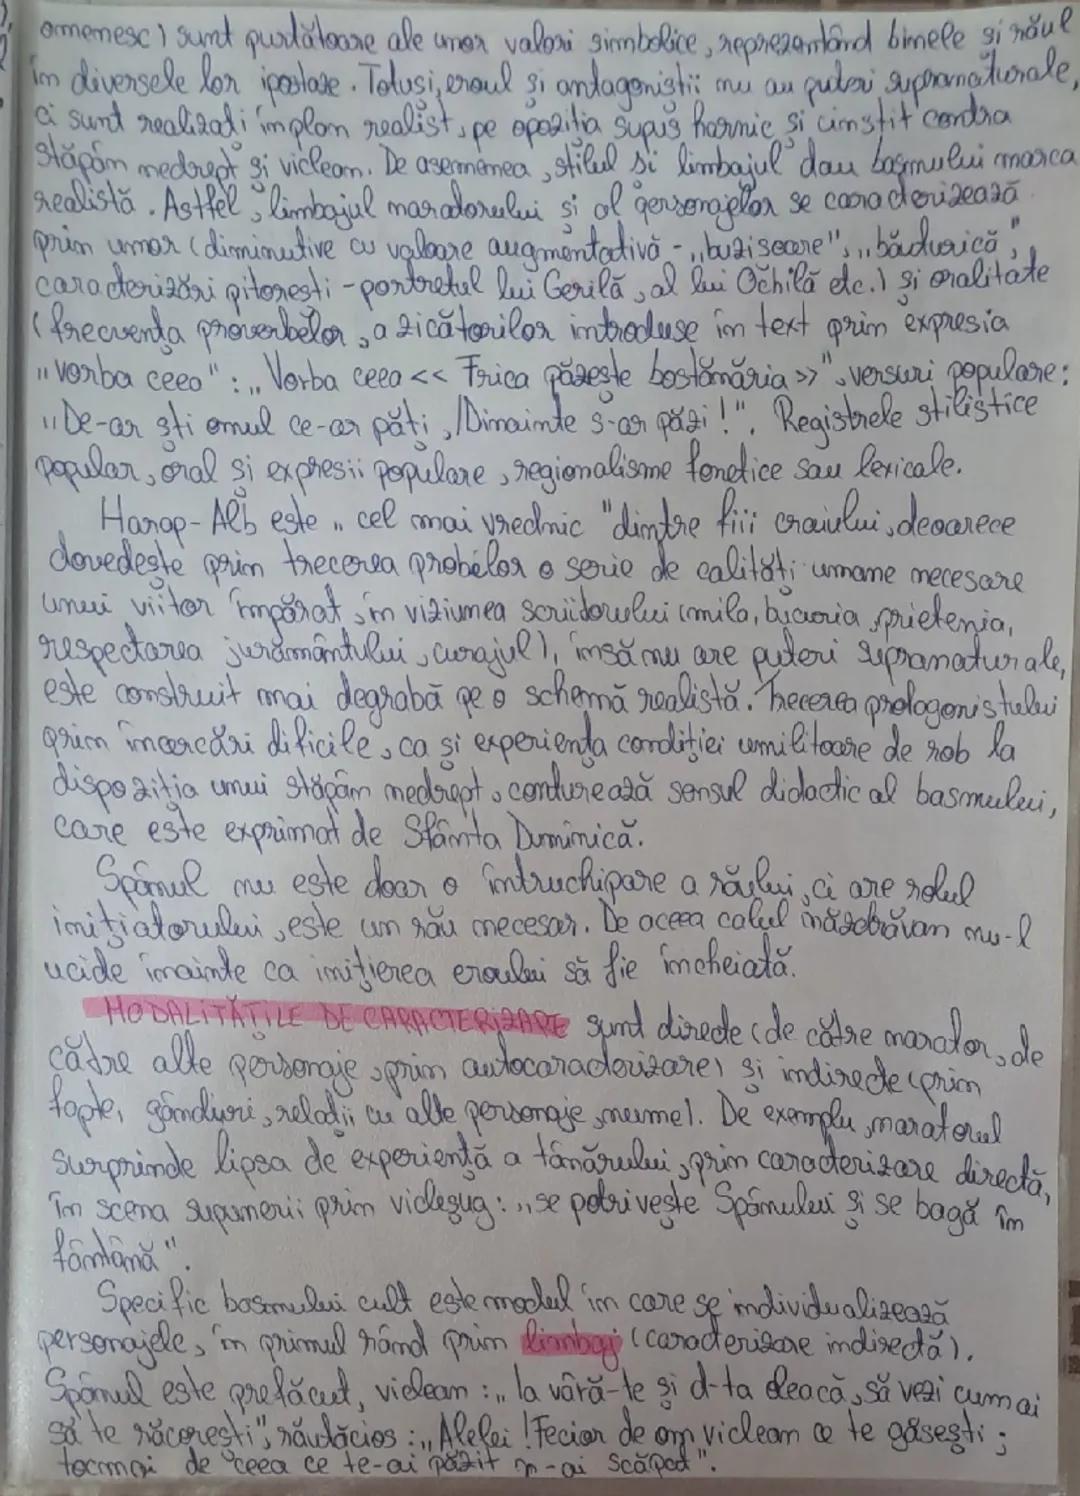 omenesc) sunt purtătoare ale unor valori simbolice, reprezentând binele și răul
în diversele lor ipostaze. Totuși, eroul și antagoniștii nu au puteri supranaturale,
ci sunt realizați în plan realist, pe opoziția supus harnic și cinstit contra
stăpân nedrept și viclean. De asemenea, stilul și limbajul dau basmului marca
realistă. Astfel, limbajul naratorului și al personajelor se caracterizează
prin umor (diminutive cu valoare augmentativă - „buzișoare", „băuturică",
caracterizări pitorești - portretul lui Gerilă, al lui Ochilă etc.) și oralitate
(frecvența proverbelor, a zicătorilor introduse în text prin expresia
„vorba ceea": „Vorba ceea << Frica păzește bostănăria >>", versuri populare:
„De-ar ști omul ce-ar păți, /Dinainte s-ar păzi!". Registrele stilistice
popular, oral și expresii populare, regionalisme fonetice sau lexicale.
Harap-Alb este „cel mai vrednic" dintre fiii craiului, deoarece
dovedește prin trecerea probelor o serie de calități umane necesare
unui viitor împărat, în viziunea scriitorului (mila, prietenia,
respectarea jurământului, curajul), însă nu are puteri supranaturale,
este construit mai degrabă pe o schemă realistă. Trecerea protagonistului
prin încercări dificile, ca și experiența condiției umilitoare de rob la
dispoziția unui stăpân nedrept, conturează sensul didactic al basmului,
care este exprimat de Sfânta Duminică.
Spânul nu este doar o întruchipare a răului, ci are rolul
inițiatorului, este un rău necesar. De aceea calul năzdrăvan nu-l
ucide înainte ca inițierea eroului să fie încheiată.
MODALITĂȚILE DE CARACTERIZARE sunt directe (de către narator, de
către alte personaje, prin autocaracterizare) și indirecte (prin
fapte, gânduri, relații cu alte personaje, nume). De exemplu, naratorul
surprinde lipsa de experiență a tânărului, prin caracterizare directă,
în scena supunerii prin vicleșug: „se potrivește Spânului și se bagă în
fântână".
Specific basmului cult este modul în care se individualizează
personajele, în primul rând prin limbaj (caracterizare indirectă).
Spânul este prefăcut, viclean: „Ia vâră-te și d-ta oleacă, să vezi cum ai
să te răcorești", răutăcios: „Alelei! Fecior de om viclean ce te găsești;
tocmai de ceea ce te-ai păzit n-ai scăpat".